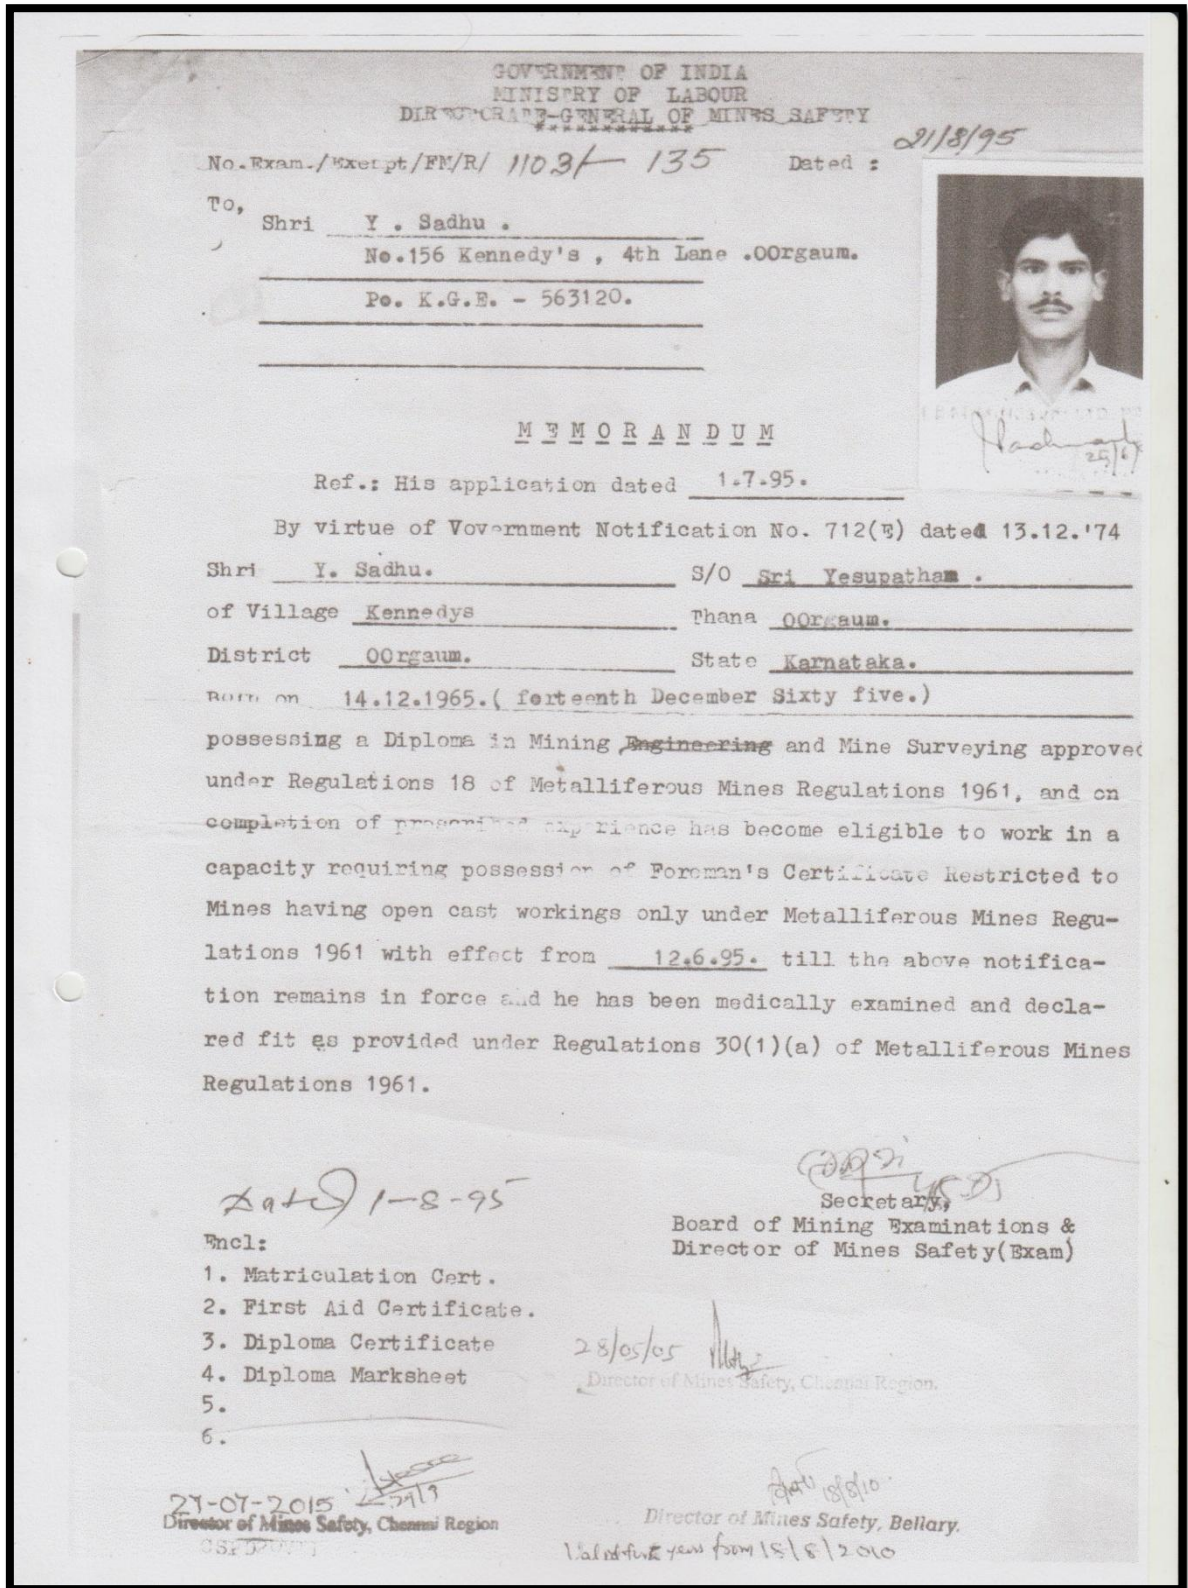 GOVERNMENT OF INDIA
MINISTRY OF LABOUR
DIRECTORATE-GENERAL OF MINES SAFETY
************
21/8/95
No.Exam./Exempt/FM/R/ 1103/- 135 Dated :
To,
Shri Y . Sadhu .
No.156 Kennedy's , 4th Lane .OOrgaum.
Po. K.G.E. - 563120.
MEMORANDUM
Ref.: His application dated 1.7.95.
By virtue of Vovernment Notification No. 712(E) dated 13.12.'74
Shri Y. Sadhu. S/O Sri Yesupatham .
of Village Kennedys Thana OOrgaum.
District OOrgaum. State Karnataka.
Born on 14.12.1965.( forteenth December Sixty five.)
possessing a Diploma in Mining Engineering and Mine Surveying approved
under Regulations 18 of Metalliferous Mines Regulations 1961, and on
completion of prescribed experience has become eligible to work in a
capacity requiring possession of Foreman's Certificate Restricted to
Mines having open cast workings only under Metalliferous Mines Regu-
lations 1961 with effect from 12.6.95. till the above notifica-
tion remains in force and he has been medically examined and decla-
red fit as provided under Regulations 30(1)(a) of Metalliferous Mines
Regulations 1961.
1-8-95
Secretary,
Board of Mining Examinations &
Director of Mines Safety(Exam)
Encl:
1. Matriculation Cert.
2. First Aid Certificate.
3. Diploma Certificate
4. Diploma Marksheet
5.
6.
28/05/05
Director of Mines Safety, Chennai Region.
27-07-2015
Director of Mines Safety, Chennai Region
18/8/10
Director of Mines Safety, Bellary.
Valid for 5 years from 18/8/2010